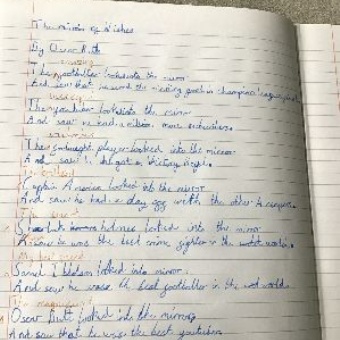 The mirror of Wishes
By Oscar Rutt
The footballer looked into the mirror
And saw that he scored the winning goal in champions league
The youtuber looked into the mirror
And saw he had a million more subscribers.
The fortnight player looked into the mirror
And saw he did get a Victory Royale.
Captain America looked into the mirror
And saw he had a day off with the other Avengers.
The great
Sherlock holmes looked into the mirror
he was the best crime fighter in the world.
looked into mirror.
And saw he was the best footballer in the world.
The magnificent
Oscar Rutt looked into the mirror
And saw that he was the best youtuber